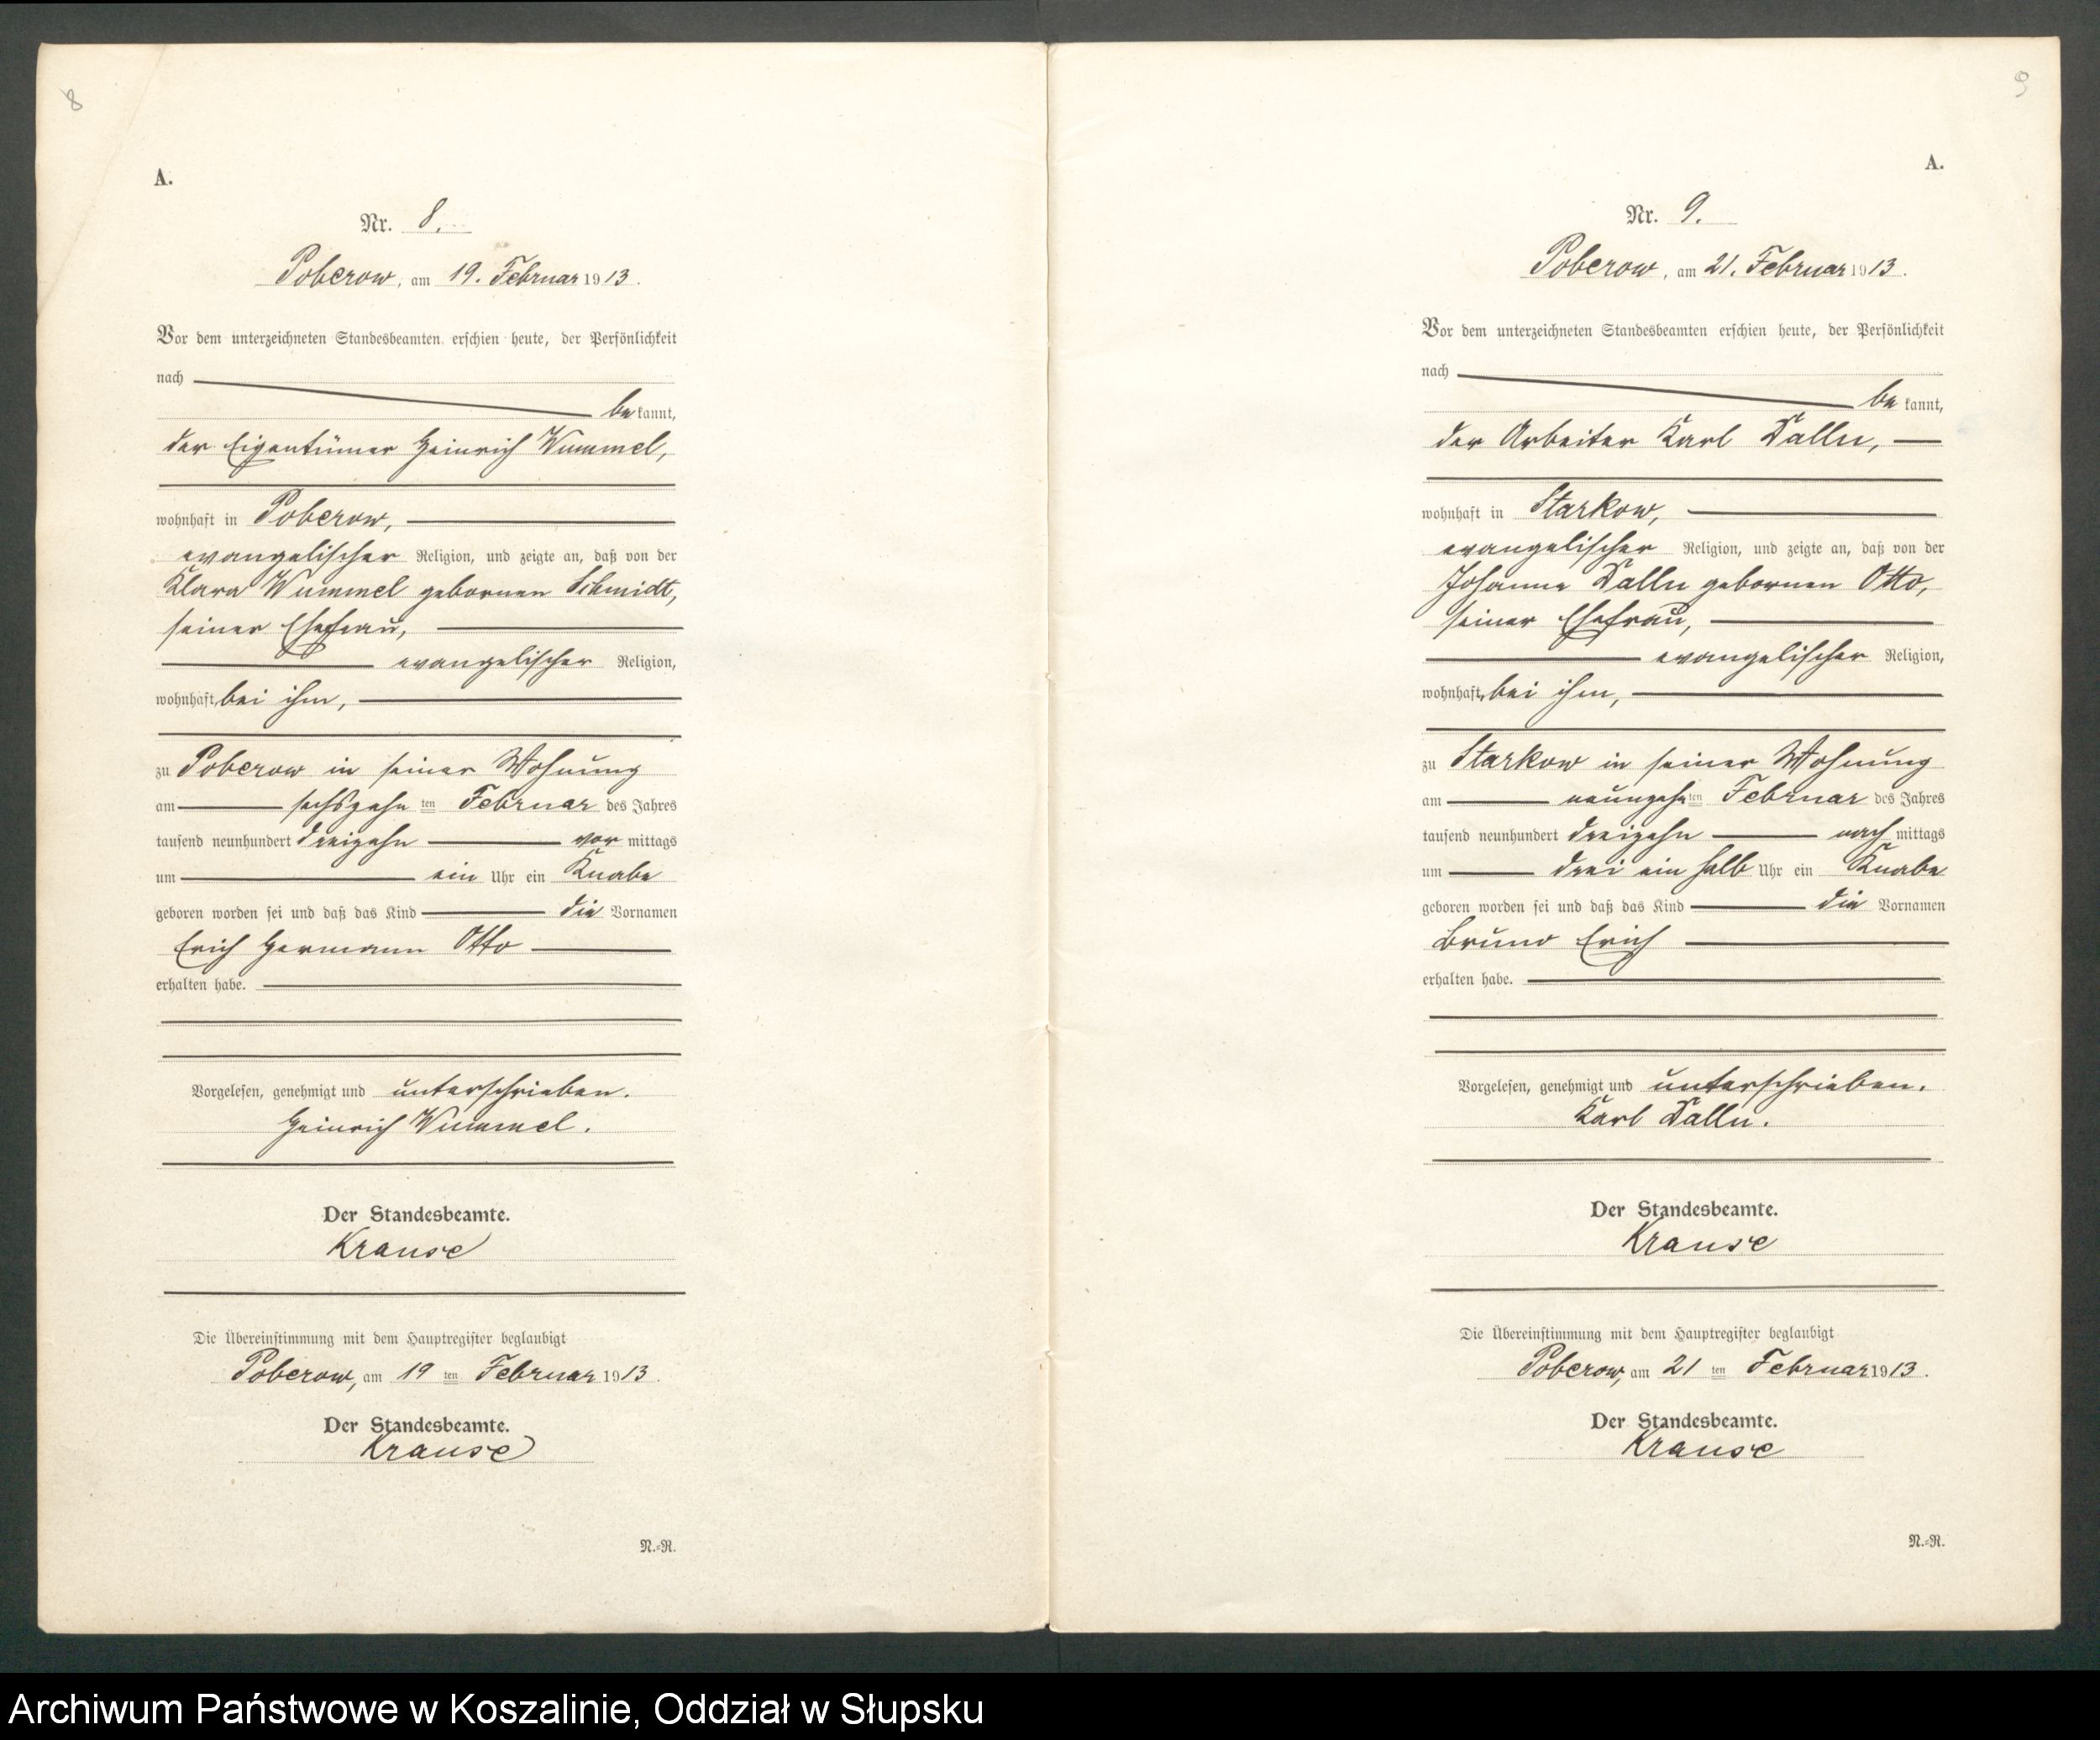 8
A.
Nr. 8.
Poberow, am 19. Februar 1913.
Vor dem unterzeichneten Standesbeamten erschien heute, der Persönlichkeit
nach
bekannt,
der Eigentümer Heinrich Wummel,
wohnhaft in Poberow,
evangelischer Religion, und zeigte an, daß von der
Klara Wummel geborenen Schmidt,
seiner Ehefrau,
evangelischer Religion,
wohnhaft, bei ihm,
zu Poberow in seiner Wohnung
am sechszehnten Februar des Jahres
tausend neunhundert dreizehn vormittags
um ein Uhr ein Knabe
geboren worden sei und daß das Kind die Vornamen
Erich Hermann Otto
erhalten habe.
Vorgelesen, genehmigt und unterschrieben.
Heinrich Wummel.
Der Standesbeamte.
Krause
Die Übereinstimmung mit dem Hauptregister beglaubigt
Poberow, am 19ten Februar 1913.
Der Standesbeamte.
Krause
N.=R.
9
A.
Nr. 9.
Poberow, am 21. Februar 1913.
Vor dem unterzeichneten Standesbeamten erschien heute, der Persönlichkeit
nach
bekannt,
der Arbeiter Karl
wohnhaft in Starkow,
evangelischer Religion, und zeigte an, daß von der
Johanne geborenen Otto,
seiner Ehefrau,
evangelischer Religion,
wohnhaft, bei ihm,
zu Starkow in seiner Wohnung
am neunzehnten Februar des Jahres
tausend neunhundert dreizehn nachmittags
um drei ein halb Uhr ein Knabe
geboren worden sei und daß das Kind die Vornamen
Bruno Erich
erhalten habe.
Vorgelesen, genehmigt und unterschrieben.
Karl
Der Standesbeamte.
Krause
Die Übereinstimmung mit dem Hauptregister beglaubigt
Poberow, am 21ten Februar 1913.
Der Standesbeamte.
Krause
N.=R.
Archiwum Państwowe w Koszalinie, Oddział w Słupsku